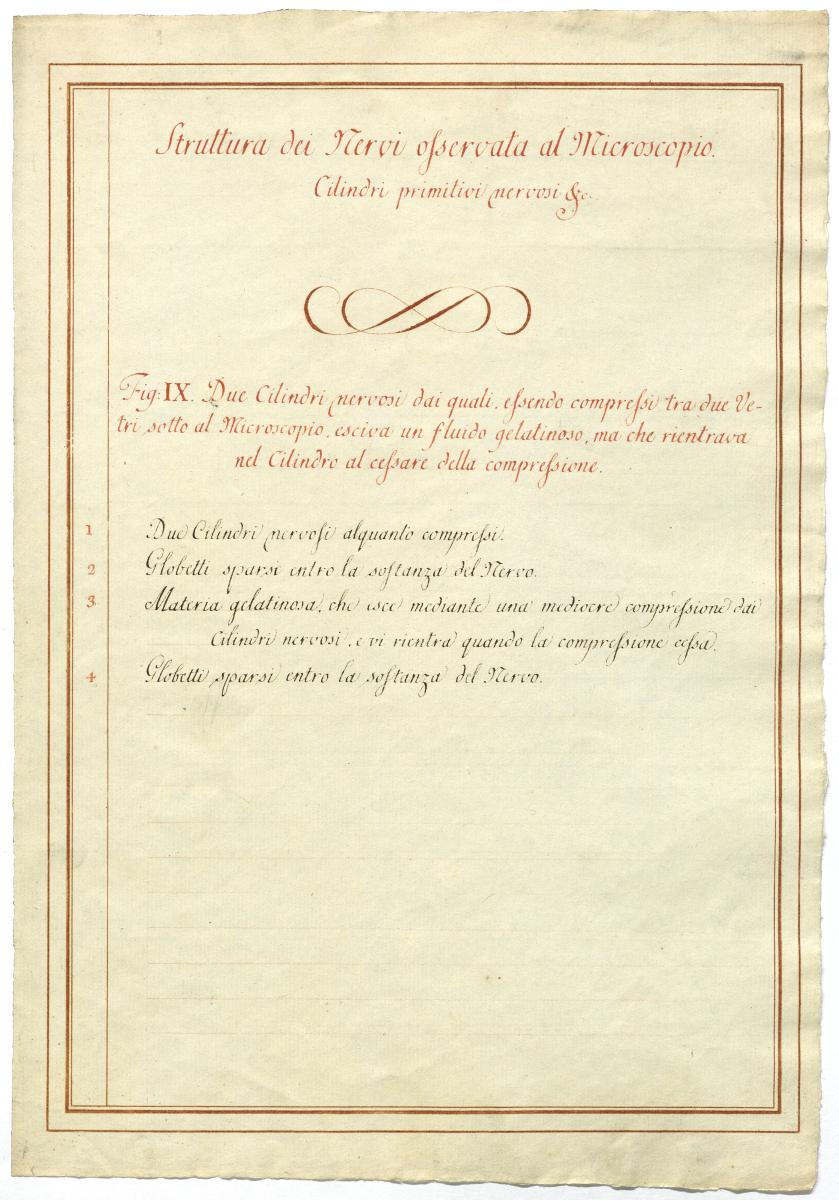 Struttura dei Nervi oſservata al Microscopio.
Cilindri primitivi nervosi &c.
Fig: IX. Due Cilindri nervosi dai quali, eſsendo compreſsi tra due Ve-
tri sotto al Microscopio, esciva un fluido gelatinoso, ma che rientrava
nel Cilindro al ceſsare della compreſsione.
1 Due Cilindri nervoſi alquanto compreſsi.
2 Globetti sparsi entro la soſtanza del Nervo.
3 Materia gelatinosa, che esce mediante una mediocre compreſsione dai
Cilindri nervosi, e vi rientra quando la compreſsione ceſsa.
4 Globetti sparsi entro la soſtanza del Nervo.